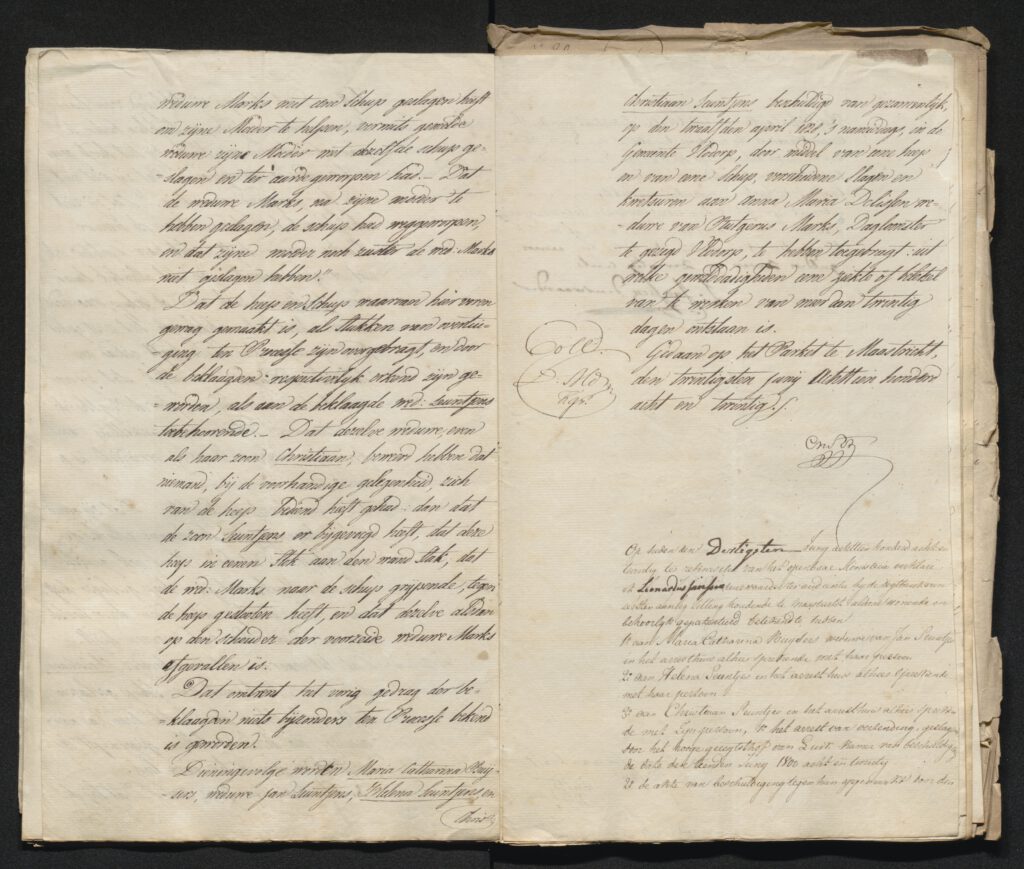 weduwe Marks met eene Schup geslagen heeft
om zijne Moeder te helpen, vermits gemelde
weduwe zijne Moeder met dezelfde schup ge-
slagen en ter aarde geworpen had. — Dat
de weduwe Marks, na zijne moeder te
hebben geslagen, de schup had weggeworpen,
en dat zijne moeder noch zuster de wed: Marks
niet geslagen hebben."
Dat de heep en Schup waarvan hier voren
gewag gemaakt is, als stukken van overtui-
ging ten Processe zijn overgebragt, en door
de beklaagden respectivelijk erkend zijn ge-
worden, als aan de beklaagde wed: Leuntjens
toebehoorende. — Dat dezelve weduwe, even
als haar zoon Christiaan, beweerd hebben dat
niemand, bij de voorhandige gelegenheid zich
van de heep bediend heeft gehad: dan dat
de zoon Leuntjens er bijgevoegd heeft, dat deze
heep in eenen stok aan den wand stak, dat
de wed: Marks naar de schup grijpende, tegen
de heep gestooten heeft, en dat dezelve alsdan
op den scheider der voorzeide weduwe Marks
afgevallen is.
Dat omtrent het vorig gedrag der be-
klaagden niets bijzonders ten Processe bekend
is geworden.
Dienvolgens worden Maria Catharina Ruij-
ters, weduwe Jan Leuntjens, Helena Leuntjens en
Chris
Christiaan Leuntjens beschuldigd van gezamenlijk,
op den twaalfden april 1828, 's namiddags, in de
Gemeente Vlodorp, door middel van eene heep
en van eene Schup, verscheidene Slagen en
kwetsuren aan Anna Maria Delissen we-
duwe van Rutgerus Marks, Daglooner
te gezegd Vlodorp, te hebben toegebragt: uit
welke geweldadigheden eene ziekte of beletsel
van te werken van meer dan twintig
dagen ontstaan is.
Gedaan op het Parket te Maastricht,
den twintigsten junij Achttien honderd
acht en twintig./.
Coll.
Op heden den Dertigsten Juny achttien honderd acht en
twintig te requisitie van het openbare Ministerie
Leonardus Janssen
eersten aanleg zitting houdende te Maastricht aldaar wonende en
behoorlijk gepatenteerd beteekend te hebben
1º aan Maria Catharina Ruyters weduwe van Jan Leuntjes
in het arresthuis alhier sprekende met haar persoon
2º aan Helena Leuntjes in het arresthuis alhier sprekende
met haar persoon
3º aan Christiaan Leuntjes in het arresthuis alhier spreken-
de met zijn persoon, 1º het arrest van verzending, geslagen
door het hooge geregtshof van Luik kamer van beschuldiging
de dato den tienden Juny 1800 acht en twintig
2º de akte van beschuldiging tegen hen opgesteld door den